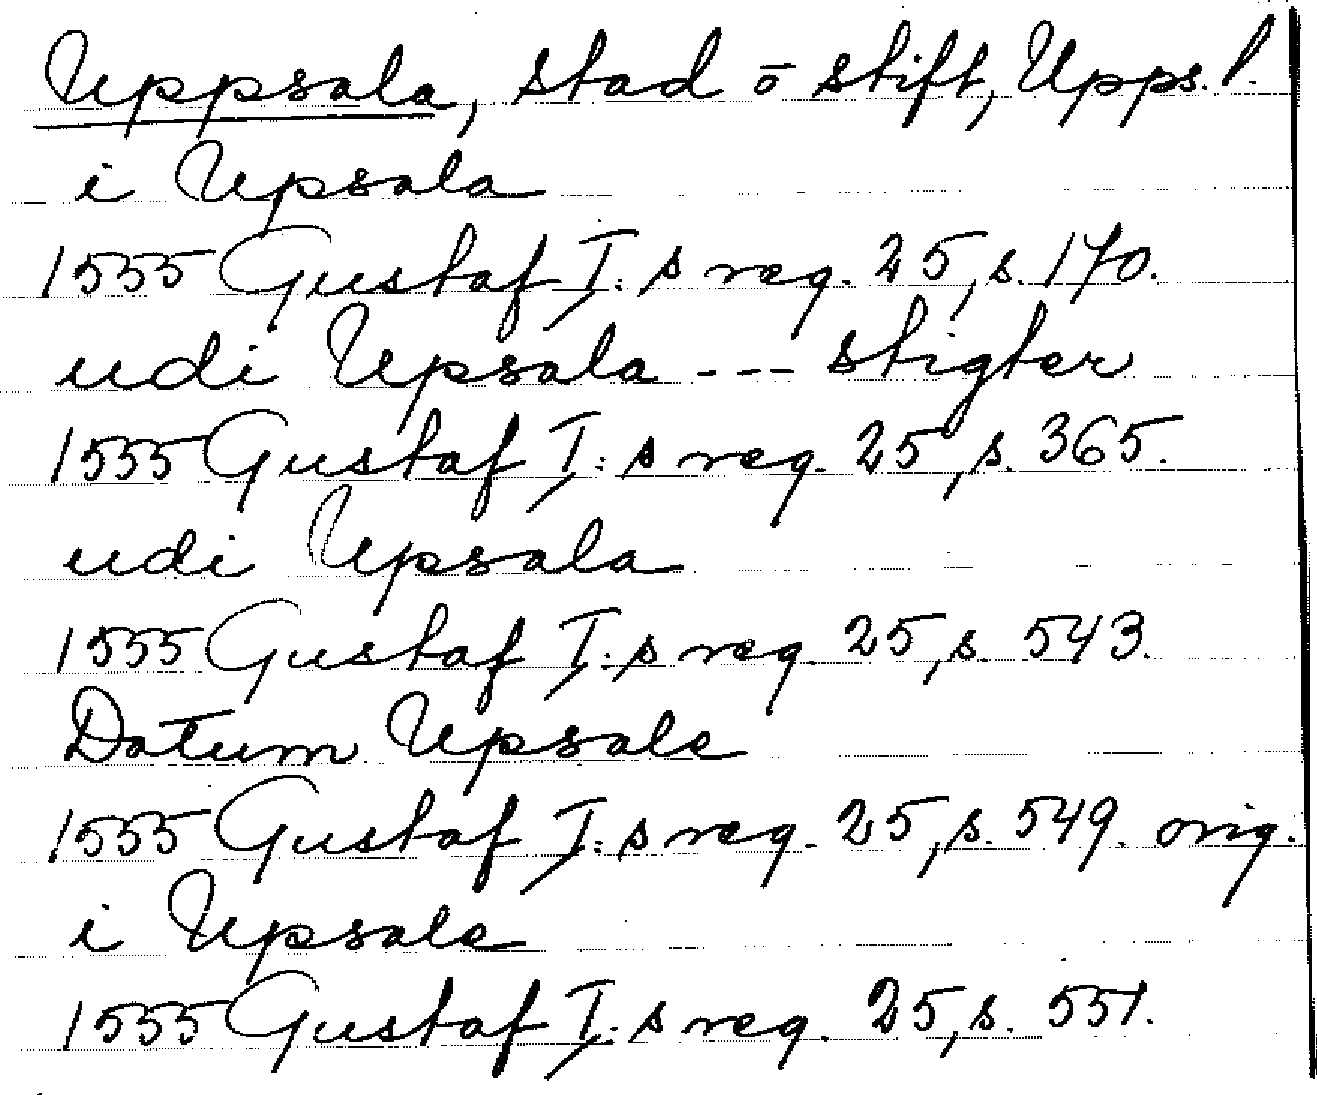 Uppsala, stad o stift, Upps. l.
i Upsala
1555 Gustaf I:s reg. 25, s. 170.
udi Upsala --- stigter
1555 Gustaf I:s reg. 25, s. 365.
udi Upsala
1555 Gustaf I:s reg. 25, s. 543.
Datum Upsale
1555 Gustaf I:s reg. 25, s. 549. orig.
i Upsale
1555 Gustaf I:s reg. 25, s. 551.